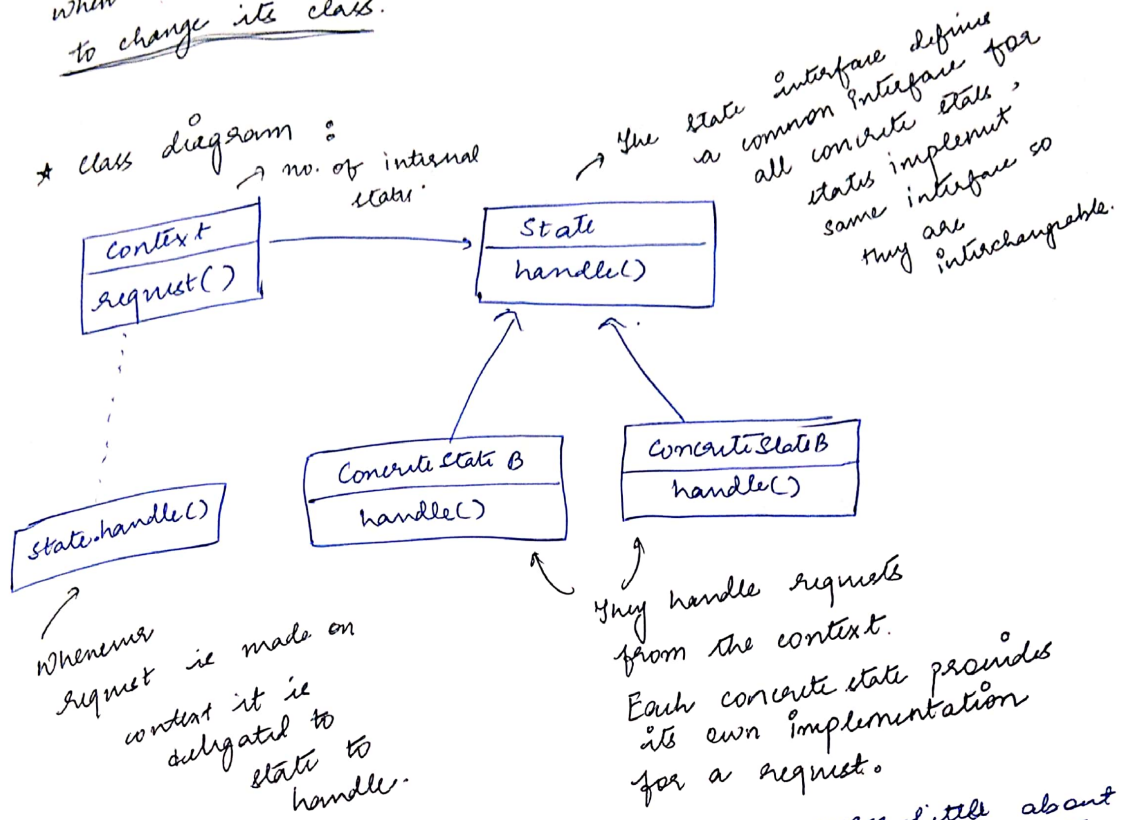 when
to change its class.
* Class diagram :
→ no. of internal
states.
→ The state interface define
a common interface for
all concrete states,
states implement
same interface so
they are
interchangeable.
Context
request()
State
handle()
Concrete state B
handle()
Concrete State B
handle()
state.handle()
Whenever
request is made on
context it is
delegated to
state to
handle.
They handle requests
from the context.
Each concrete state provides
its own implementation
for a request.
little about